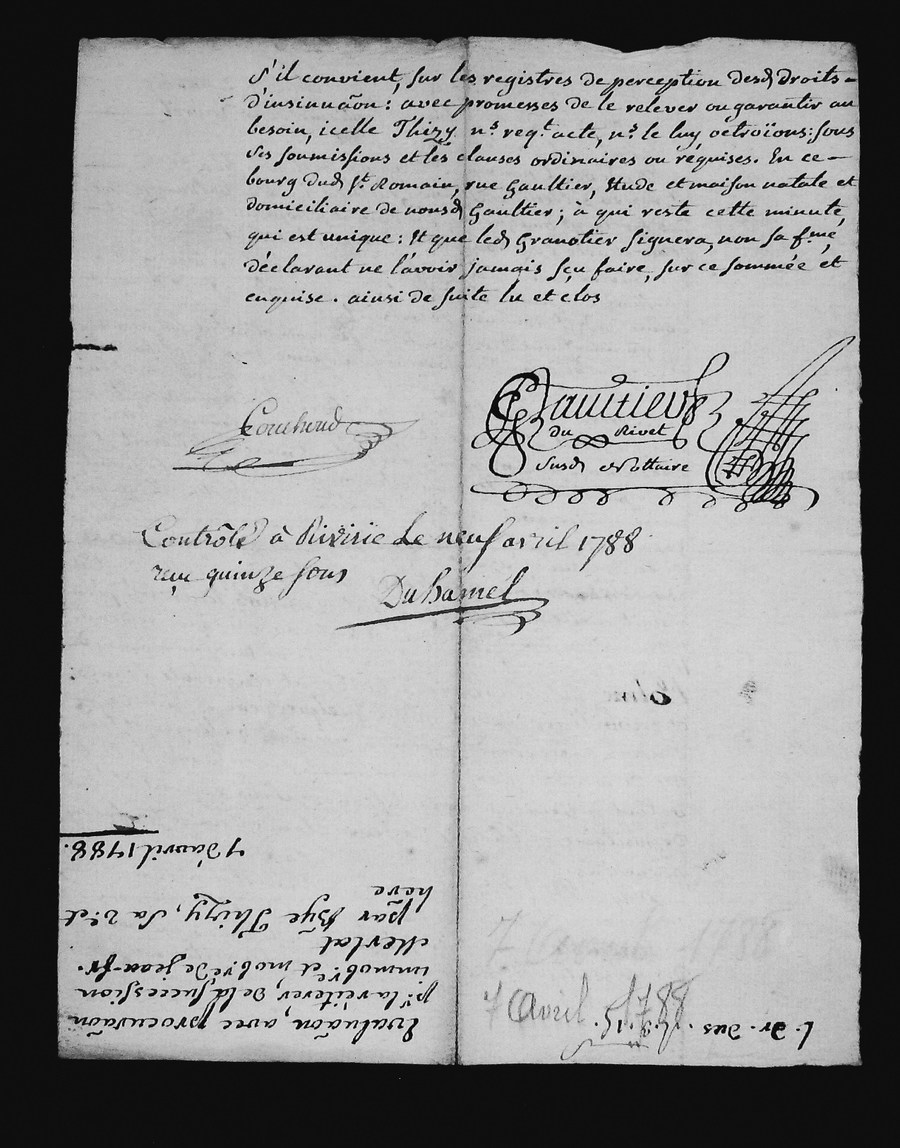 S'il convient, sur les registres de perception desd droits =
d'insinuãon : avec promesses de le relever ou garantir au
besoin, icelle Thizy ns reqt acte, ns le luy octroïons : sous
ses soumissions et les clauses ordinaires ou réquises. En ce —
bourg dud St. Romain, rue Gaultier, Etude et maison natale et
domiciliaire de nousd Gaultier ; à qui reste cette minute,
qui est unique : Et que led Granotier signera, non sa f.mé,
déclarant ne l'avoir jamais sçu faire, sur ce sommée et
enquise . ainsi de suite lu et clos
Couchoud
Gaultier
du Rivet
susd Nottaire
Controlé à Rivirie Le neuf avril 1788
reçu quinze sous
DuHamel
7 d'avril 1788.
7 Avril 1788
7 Avril 1788
Evaluãon, avec procurãon
pr. la réiterer, de la succession
immobre. et mobre. de Jean-fr.
Merlat
par Thizy, sa